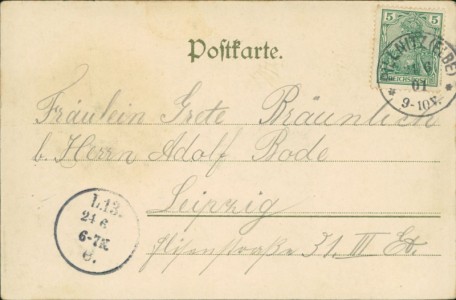 Postkarte.
5 5
REICHSPOST
(ELBE)
6
01
9-10V.
Fräulein Grete Bräunlich
b. Herrn Adolf Bode
Leipzig
31. III Et.
L.13.
24 6
6-7N.
c.